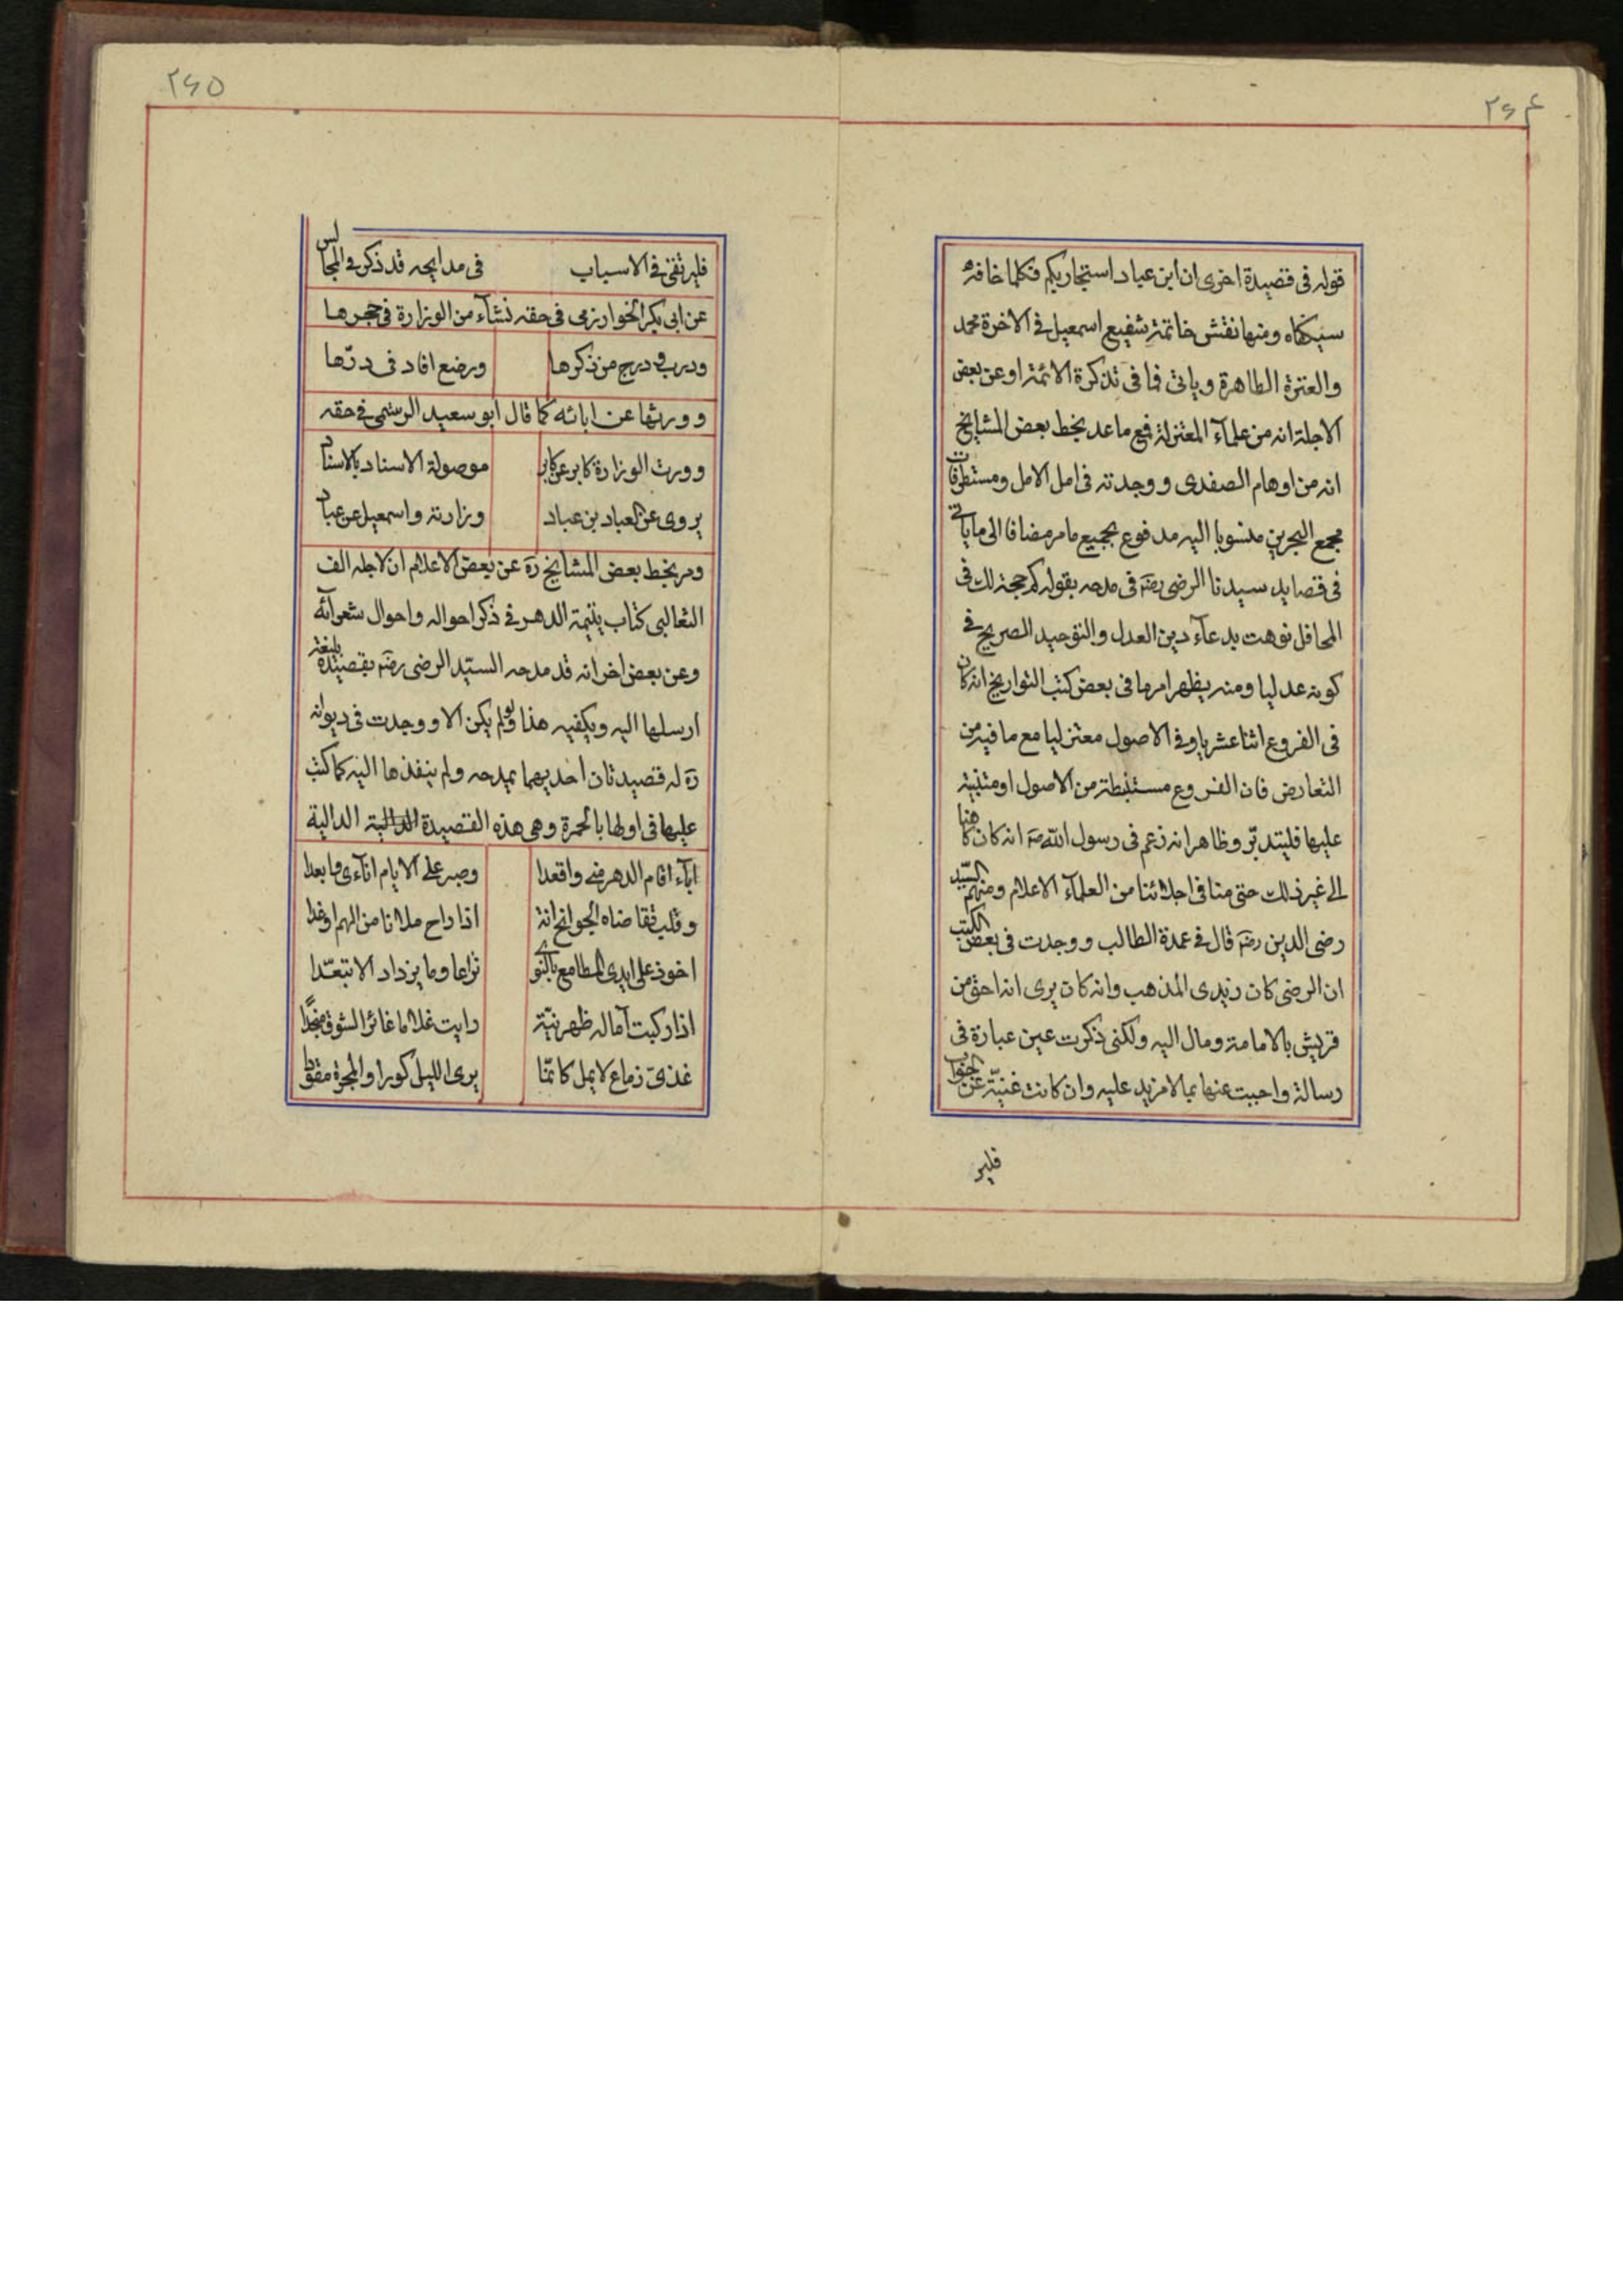 ۲۶۴
قوله فی قصیدة اخری ان ابن عباد استجار بکم فکلما خافه
سیکفاه ومنها نقش خاتمه شفیع اسمعیل فی الاخرة محمد
والعترة الطاهرة ویاتی فما فی تذکرة الائمة او عن بعض
الاجلة انه من علمآء المعتزلة فمع ما عد بخط بعض المشایخ
انه من اوهام الصفدی ووجدته فی امل الامل ومستطرفات
مجمع البحرین منسوبا الیه مدفوع بجمیع ما مر مضافا الی ما یاتی
فی قصاید سیدنا الرضی رضه فی مدحه بقوله کم حجة لك فی
المحافل نوهت بدعآء دین العدل والتوحید الصریح فی
کونه عدلیا ومنه یظهر امر ما فی بعض کتب التواریخ انه کان
فی الفروع اثنا عشریا وفی الاصول معتزلیا مع ما فیه من
التعارض فان الفروع مستنبطة من الاصول او مبتنیة
علیها فلیتدبر وظاهر انه زعم فی رسول الله صه انه کان کاهنا
الی غیر ذلك حتی منا فی اجلائنا من العلمآء الاعلام ومنهم السید
رضی الدین رضه قال فی عمدة الطالب ووجدت فی بعض الکتب
ان الرضی کان زیدی المذهب وانه کان یری انه احق من
قریش بالامامة ومال الیه ولکنی ذکرت عین عبارة فی
رسالة واجبت عنها بما لا مزید علیه وان کانت غنیة عن الجواب
فلیر
۲۶۵
فلیرتقی فی الاسباب فی مدایحه قد ذکر فی المجالس
عن ابی بکر الخوارزمی فی حقه نشآء من الوزارة فی حجرها
ودب ودرج من ذکرها ورضع افاد فی درّها
وورثها عن ابائه کما قال ابو سعید الرستمی فی حقه
وورث الوزارة کابر عن کابر موصولة الاسناد بالاسناد
یروی عن العباد بن عباد وزارته واسمعیل عن عباد
ومر بخط بعض المشایخ ره عن بعض الاعلام ان لاجله الف
الثعالبی کتاب یتیمة الدهر فی ذکر احواله واحوال شعرآئه
وعن بعض اخر انه قد مدحه السیّد الرضی رضه بقصیدة بلیغة
ارسلها الیه ویکفیه هذا ولو لم یکن الا ووجدت فی دیوانه
ره له قصیدتان احدیهما بمدحه ولم ینفذها الیه کما کتب
علیها فی اولها بالحمرة وهی هذه القصیدة الدالیة
ابآء اقام الدهر عنی واقعدا وصبر علی الایام انآءی وابعدا
وقلب تقاضاه الجوانح انة اذا راح ملانا من الهم او غدا
اخوذ علی ایدی المطامع بالنوی نزاعا وما یزداد الا تبعّدا
اذا رکبت آماله ظهر نیّة رایت غلاما غائر الشوق منجدًا
غذیّ زماع لا یمل کانّما یری اللیل کورا والمجرة مقودا